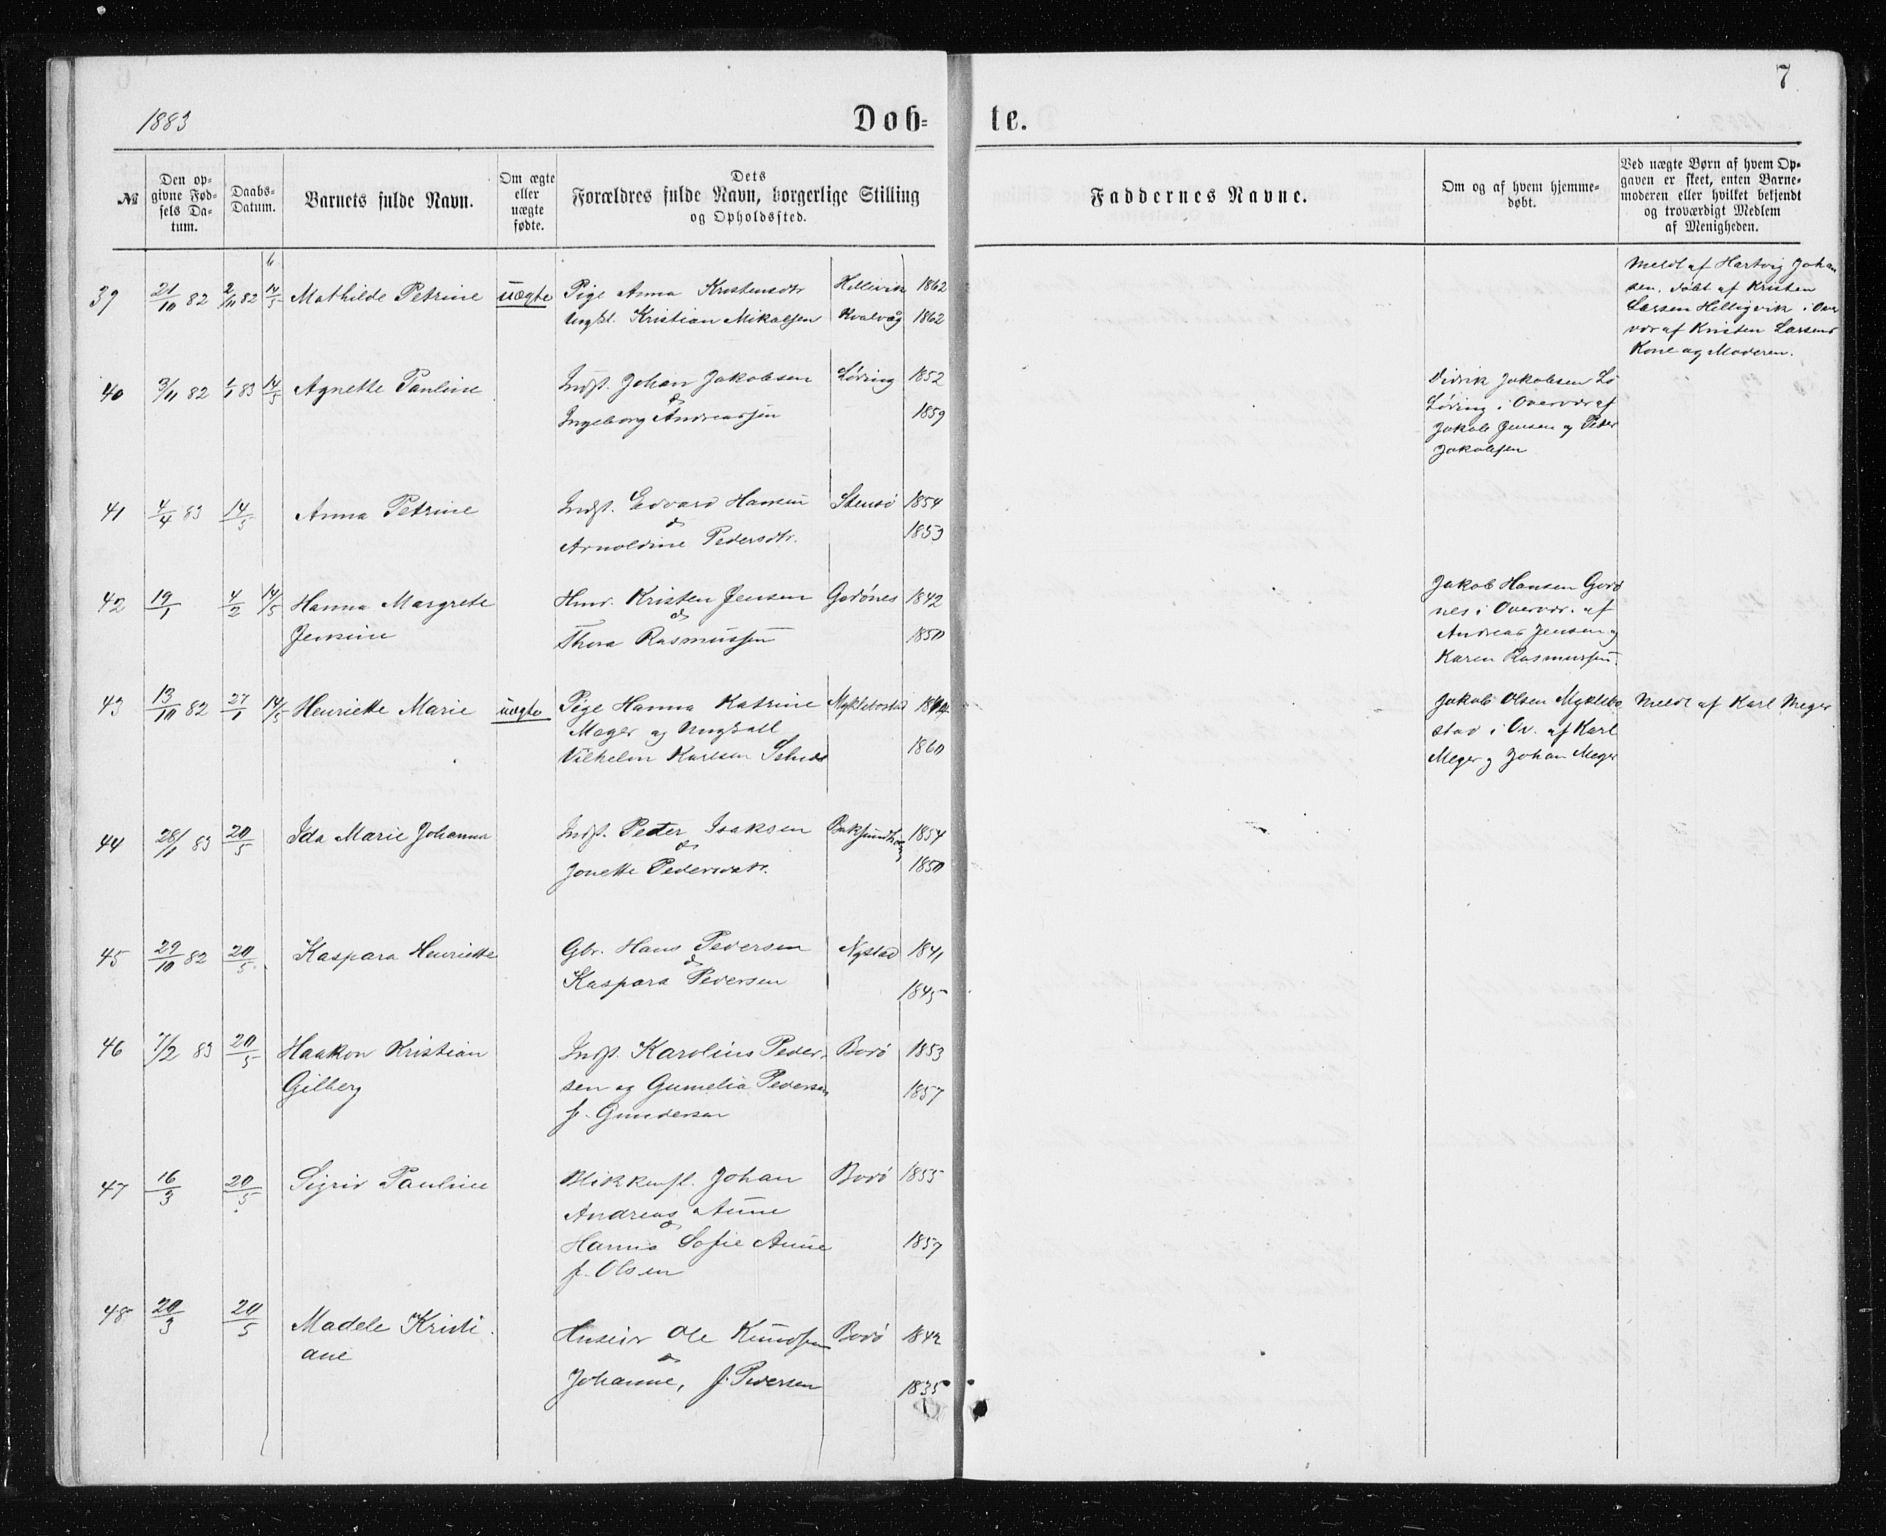 7
1883
Dob=
te.
№
Den op-
givne Fød-
sels Da-
tum.
Daabs-
Datum.
Barnets fulde Navn.
Om ægte
eller
uægte
fødte.
Dets
Forældres fulde Navn, borgerlige Stilling
og Opholdssted.
Faddernes Navne.
Om og af hvem hjemme-
døbt.
Ved uægte Børn af hvem Op-
gaven er skeet, enten Barne-
moderen eller hvilket bekjendt
og troværdigt Medlem
af Menigheden.
39 21/10 82 2/11 82 14/5 Mathilde Petrine uægte Pige Anna Kristensdtr Hillivik 1862
Ungkl. Kristian Mikalsen Kvalvåg 1862
Meldt af Hartvig Johan
sen, døbt af Kristen
Larsen Helligvik i Over
vær af Kristen Larsens
Kone og Moderen.
40 3/11 82 1/1 83 14/5 Agnette Pauline Indst. Johan Jakobsen Løding 1852
&
Ingeborg Andreassen 1859
Didrik Jakobsen Lø
Løding i Overvær af
Jakob Jensen og Peder
Jakobsen
41 4/4 83 14/5 Anna Petrine Indst. Edvard Hansen Stensø 1854
&
Arnoldine Pedersdtr. 1853
42 19/1 4/2 14/5 Hanna Margrete Hmd. Kristen Jensen Godønes 1842
Jensine &
Thora Rasmussen 1850
Jakob Hansen Godø
nes i Overvær. af
Andreas Jensen og
Karen Rasmussen.
43 13/10 82 27/1 14/5 Henriette Marie uægte Pige Hanna Katrine Myklebostad
Meger og Ungkall 1860
Vilhelm Karlsen
Jakob Olsen Myklebo
stad i Ov. af Karl
Meger og Johan Meger
Meldt af Karl Meger
44 28/1 83 20/5 Ida Marie Johanna Indst. Peder Isaksen 1854
&
Jonette Pedersdatr. 1850
45 29/10 82 20/5 Kaspara Henriette Gbr. Hans Pedersen Nystad 1841
&
Kaspara Pedersen 1845
46 7/2 83 20/5 Haakon Kristian Indst. Karolius Peder- Bodø 1853
Gilberg sen og Gumelia Pedersen 1857
f. Gundersen
47 16/3 20/5 Sigrid Pauline Blikkensl. Johan Bodø 1855
Andreas Aune
&
Hanna Sofie Aune 1857
f. Olsen
48 20/3 20/5 Madele Kristi Huseier Ole Knudsen Bodø 1842
ane &
Johanne, f. Pedersen 1835